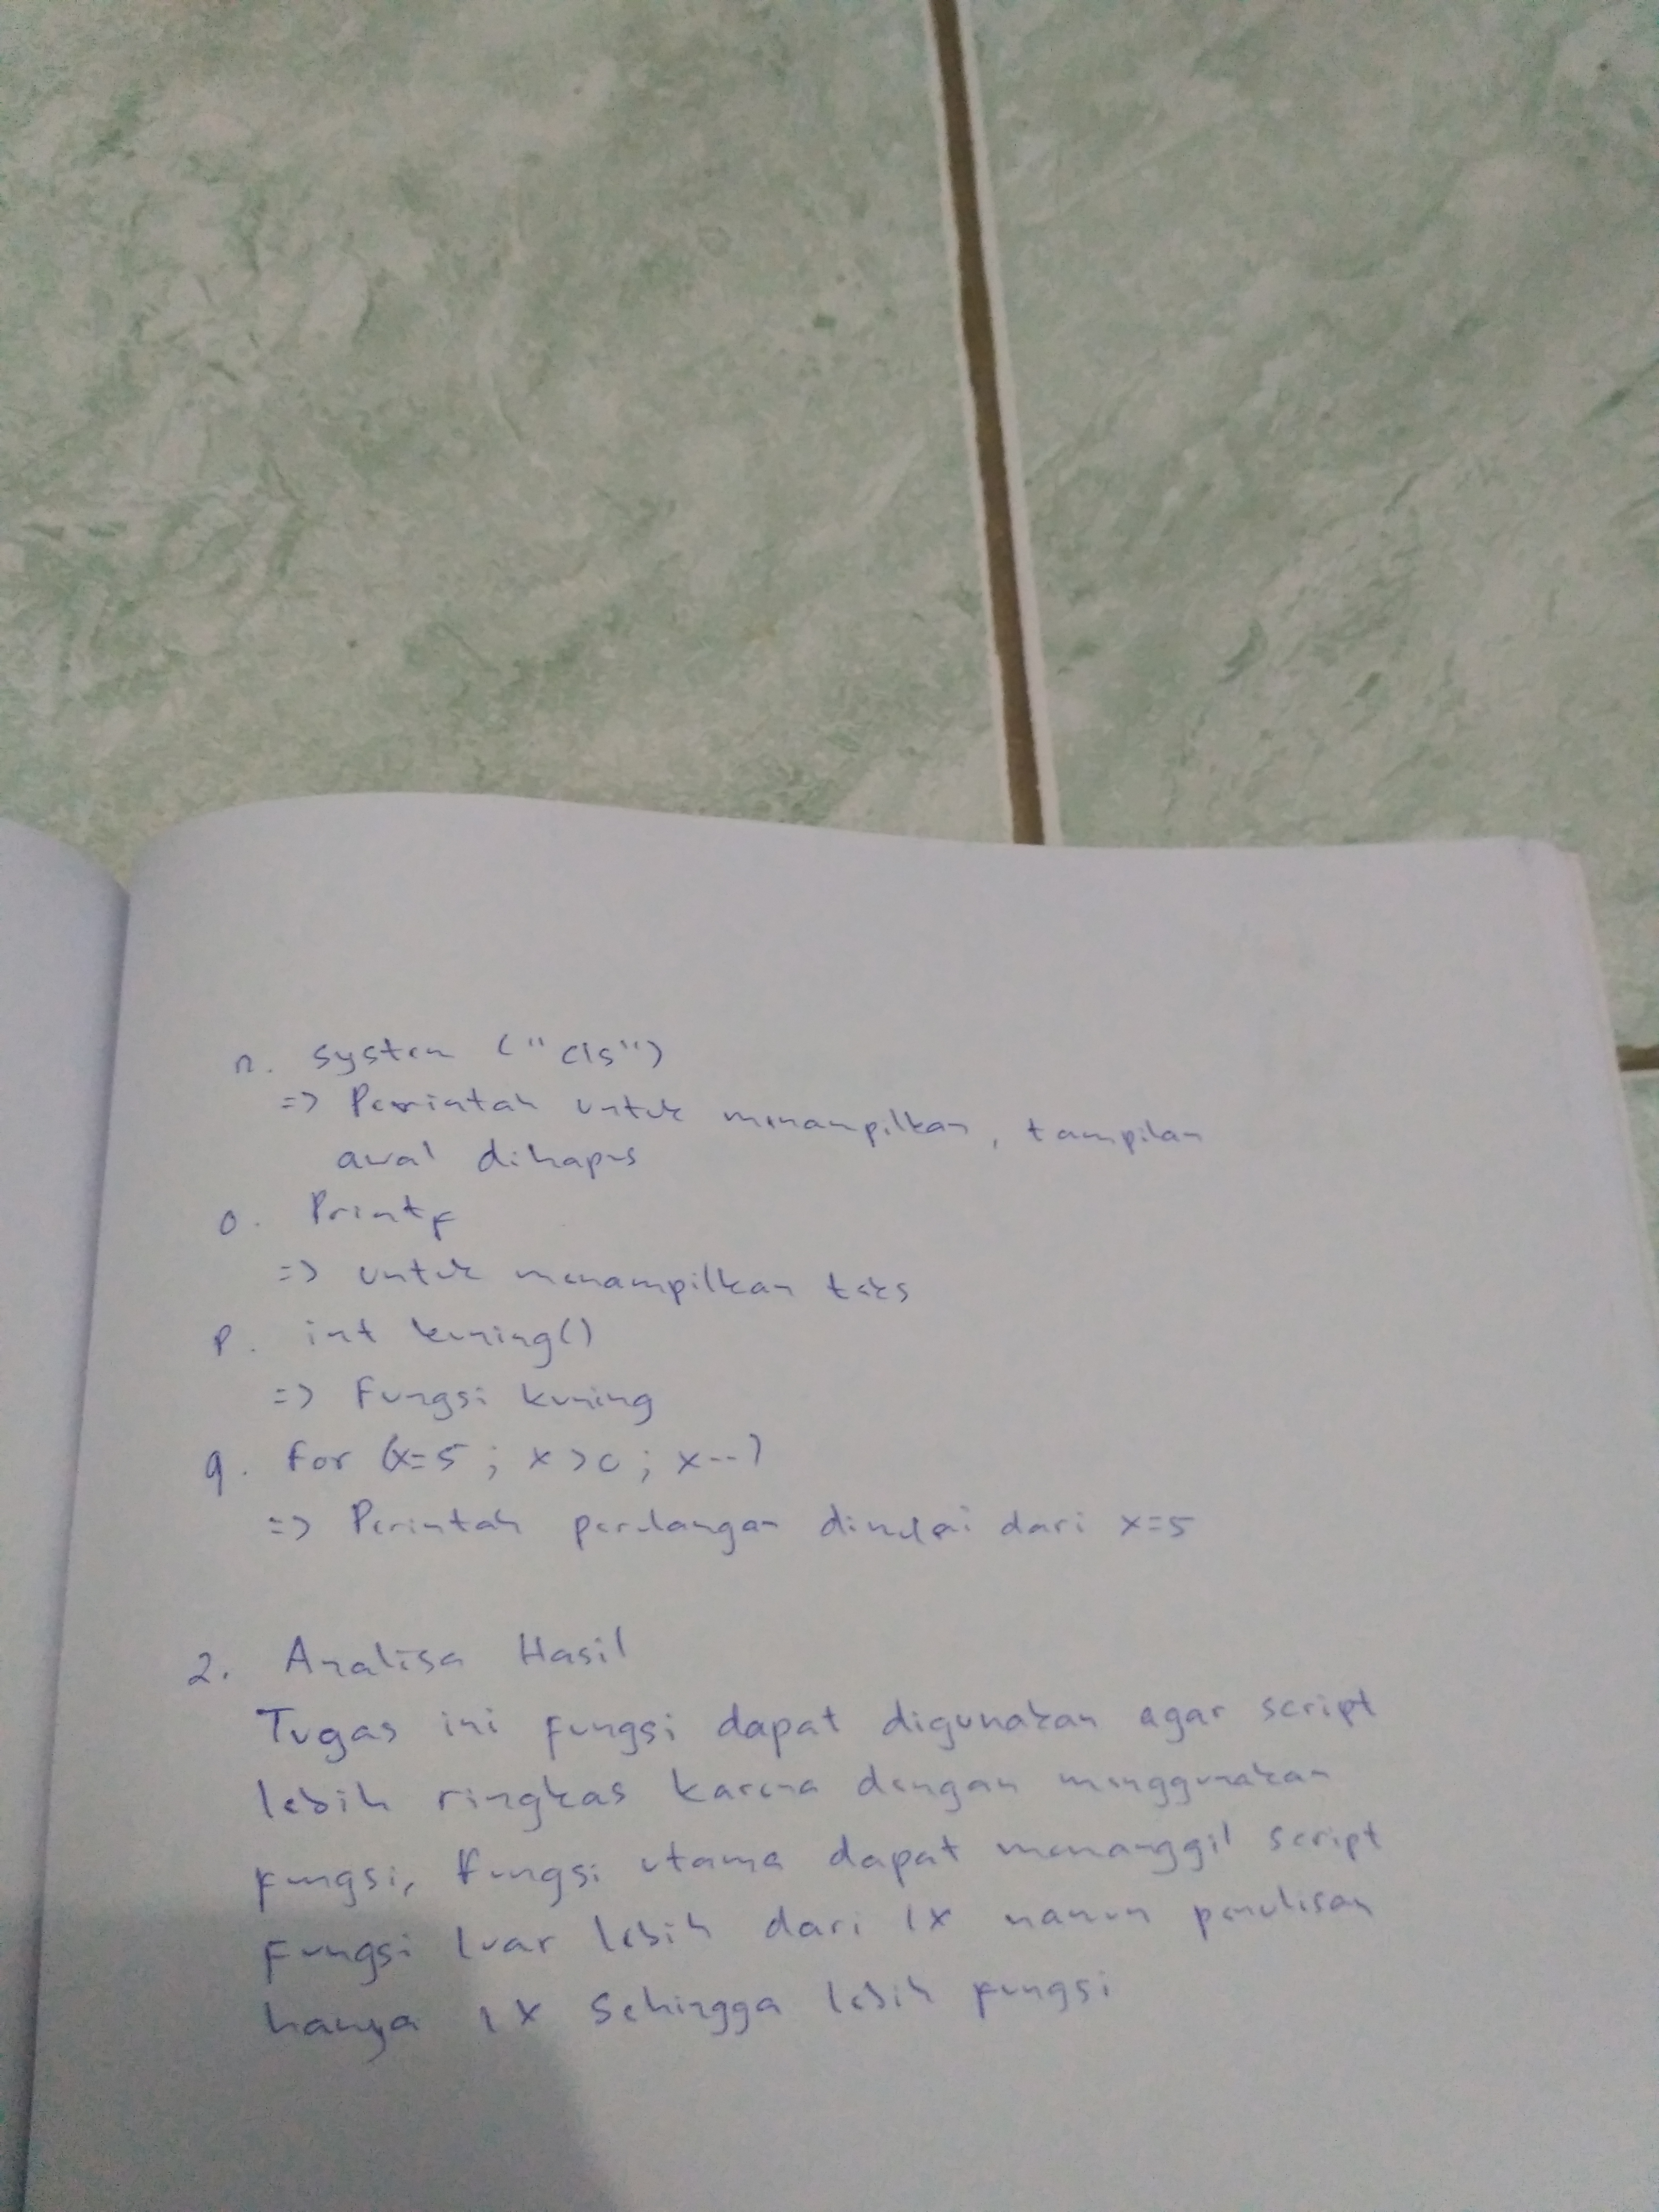 n. system ("cls")
=> Perintah untuk menampilkan, tampilan
awal dihapus
o. Printf
=> untuk menampilkan teks
p. int kuning()
=> Fungsi kuning
q. for (x=5 ; x>0 ; x--)
=> Perintah perulangan dimulai dari x=5
2. Analisa Hasil
Tugas ini fungsi dapat digunakan agar script
lebih ringkas karena dengan menggunakan
fungsi, fungsi utama dapat memanggil script
fungsi luar lebih dari 1x namun penulisan
hanya 1x Sehingga lebih fungsi